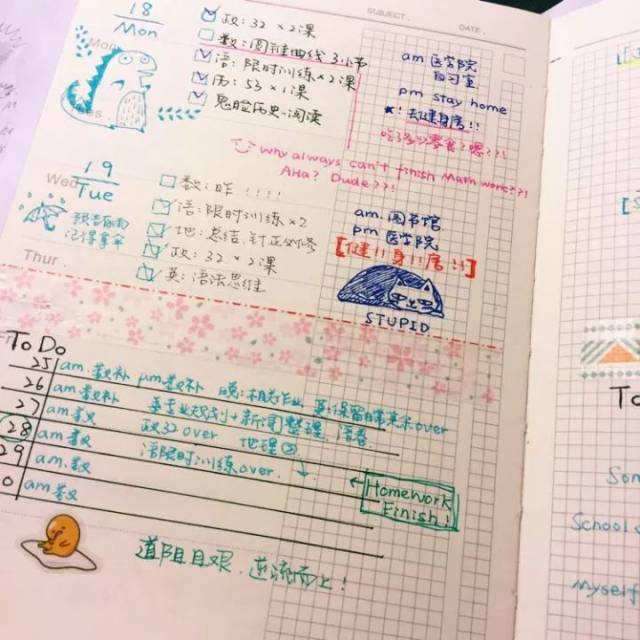 SUBJECT.
DATE.
18
Mon
政: 32 × 2课
数: 圆锥曲线 3小节
语: 限时训练 × 2课
历: 53 × 1课
鬼脸历史·阅读
am 医学院
自习室
pm stay home
去健身房!!
why always can't finish Math work??!
AHa? Dude??!
19
Wed
Tue
预告有雨
记得拿伞
数: 昨!!!!
语: 限时训练 × 2
地: 总结, 订正必修
政: 32 × 2课
英: 语法思维
am 图书馆
pm 医学院
[健!!身!!房!!]
STUPID
Thur
To Do
25 am 数补 pm 数补
26 am 数补
27 am 数 政32 over 地理②
28 am 数 语限时训练 over.
29 am. 数
0 am 数
Homework
Finish!
道阻且艰, 逆流而上!
To
Son
School
Myself